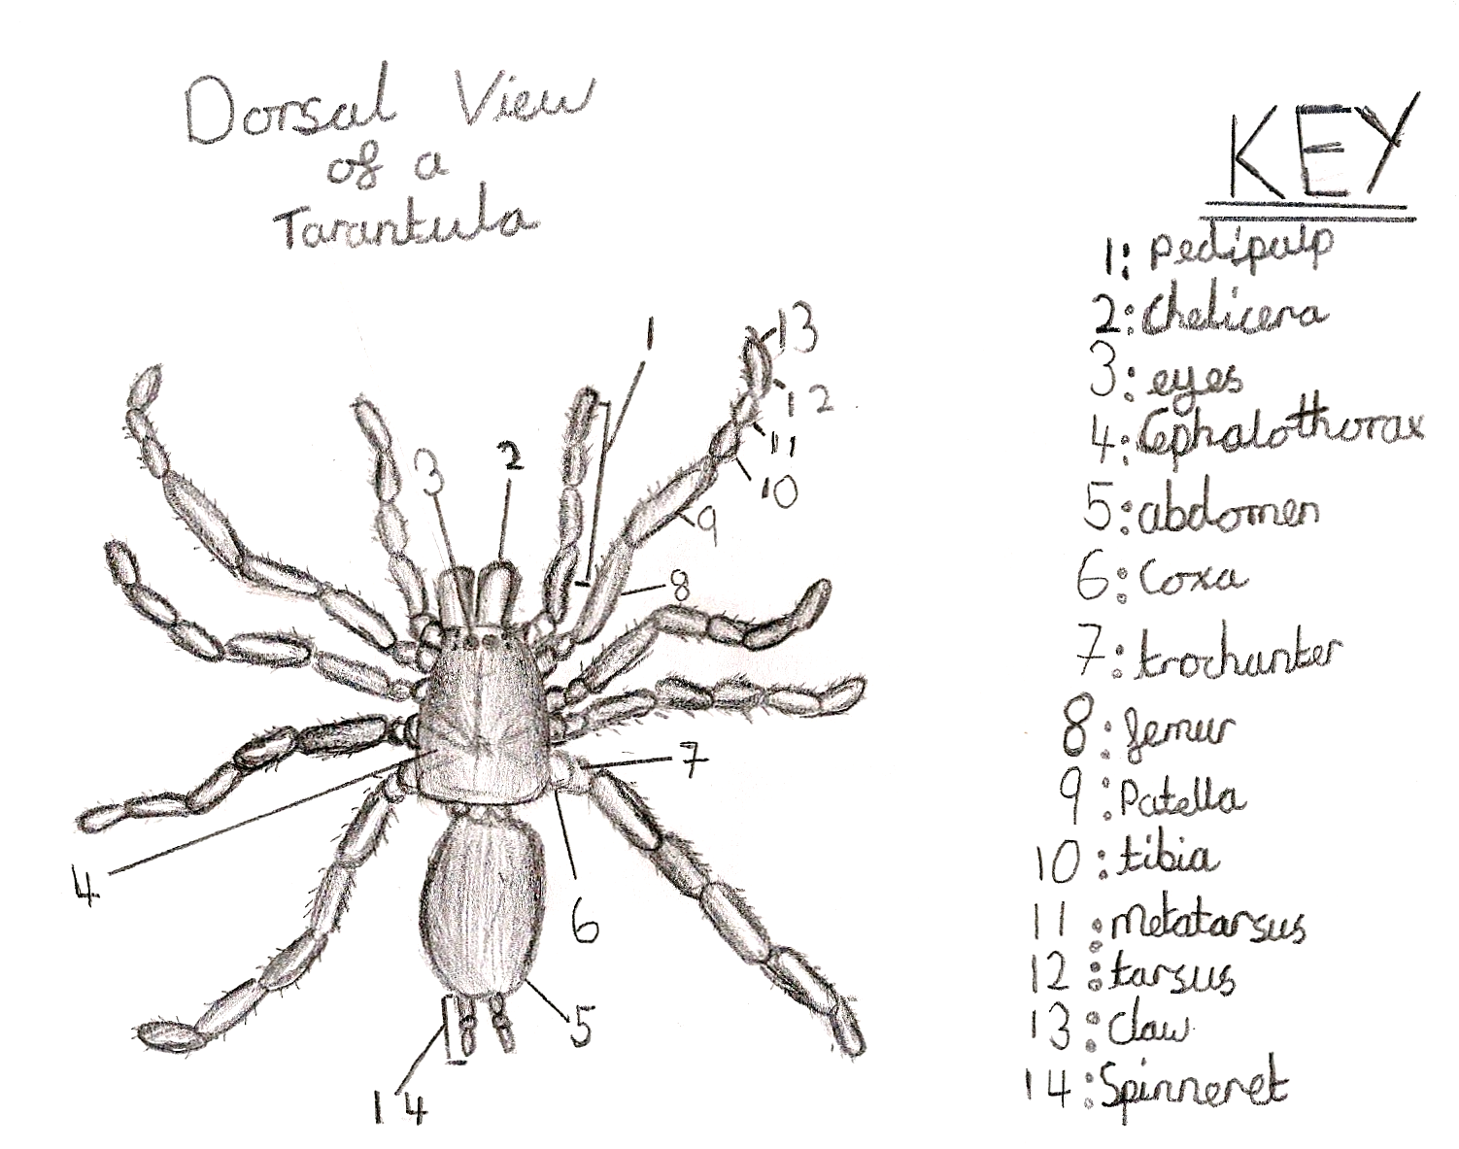 Dorsal View
of a
Tarantula
KEY
1: Pedipulp
2: Chelicera
3: eyes
4: Cephalothorax
5: abdomen
6: Coxa
7: trochanter
8: femur
9: Patella
10: tibia
11: metatarsus
12: tarsus
13: claw
14: Spinneret
1
13
12
3
2
11
10
9
8
7
4
6
5
14